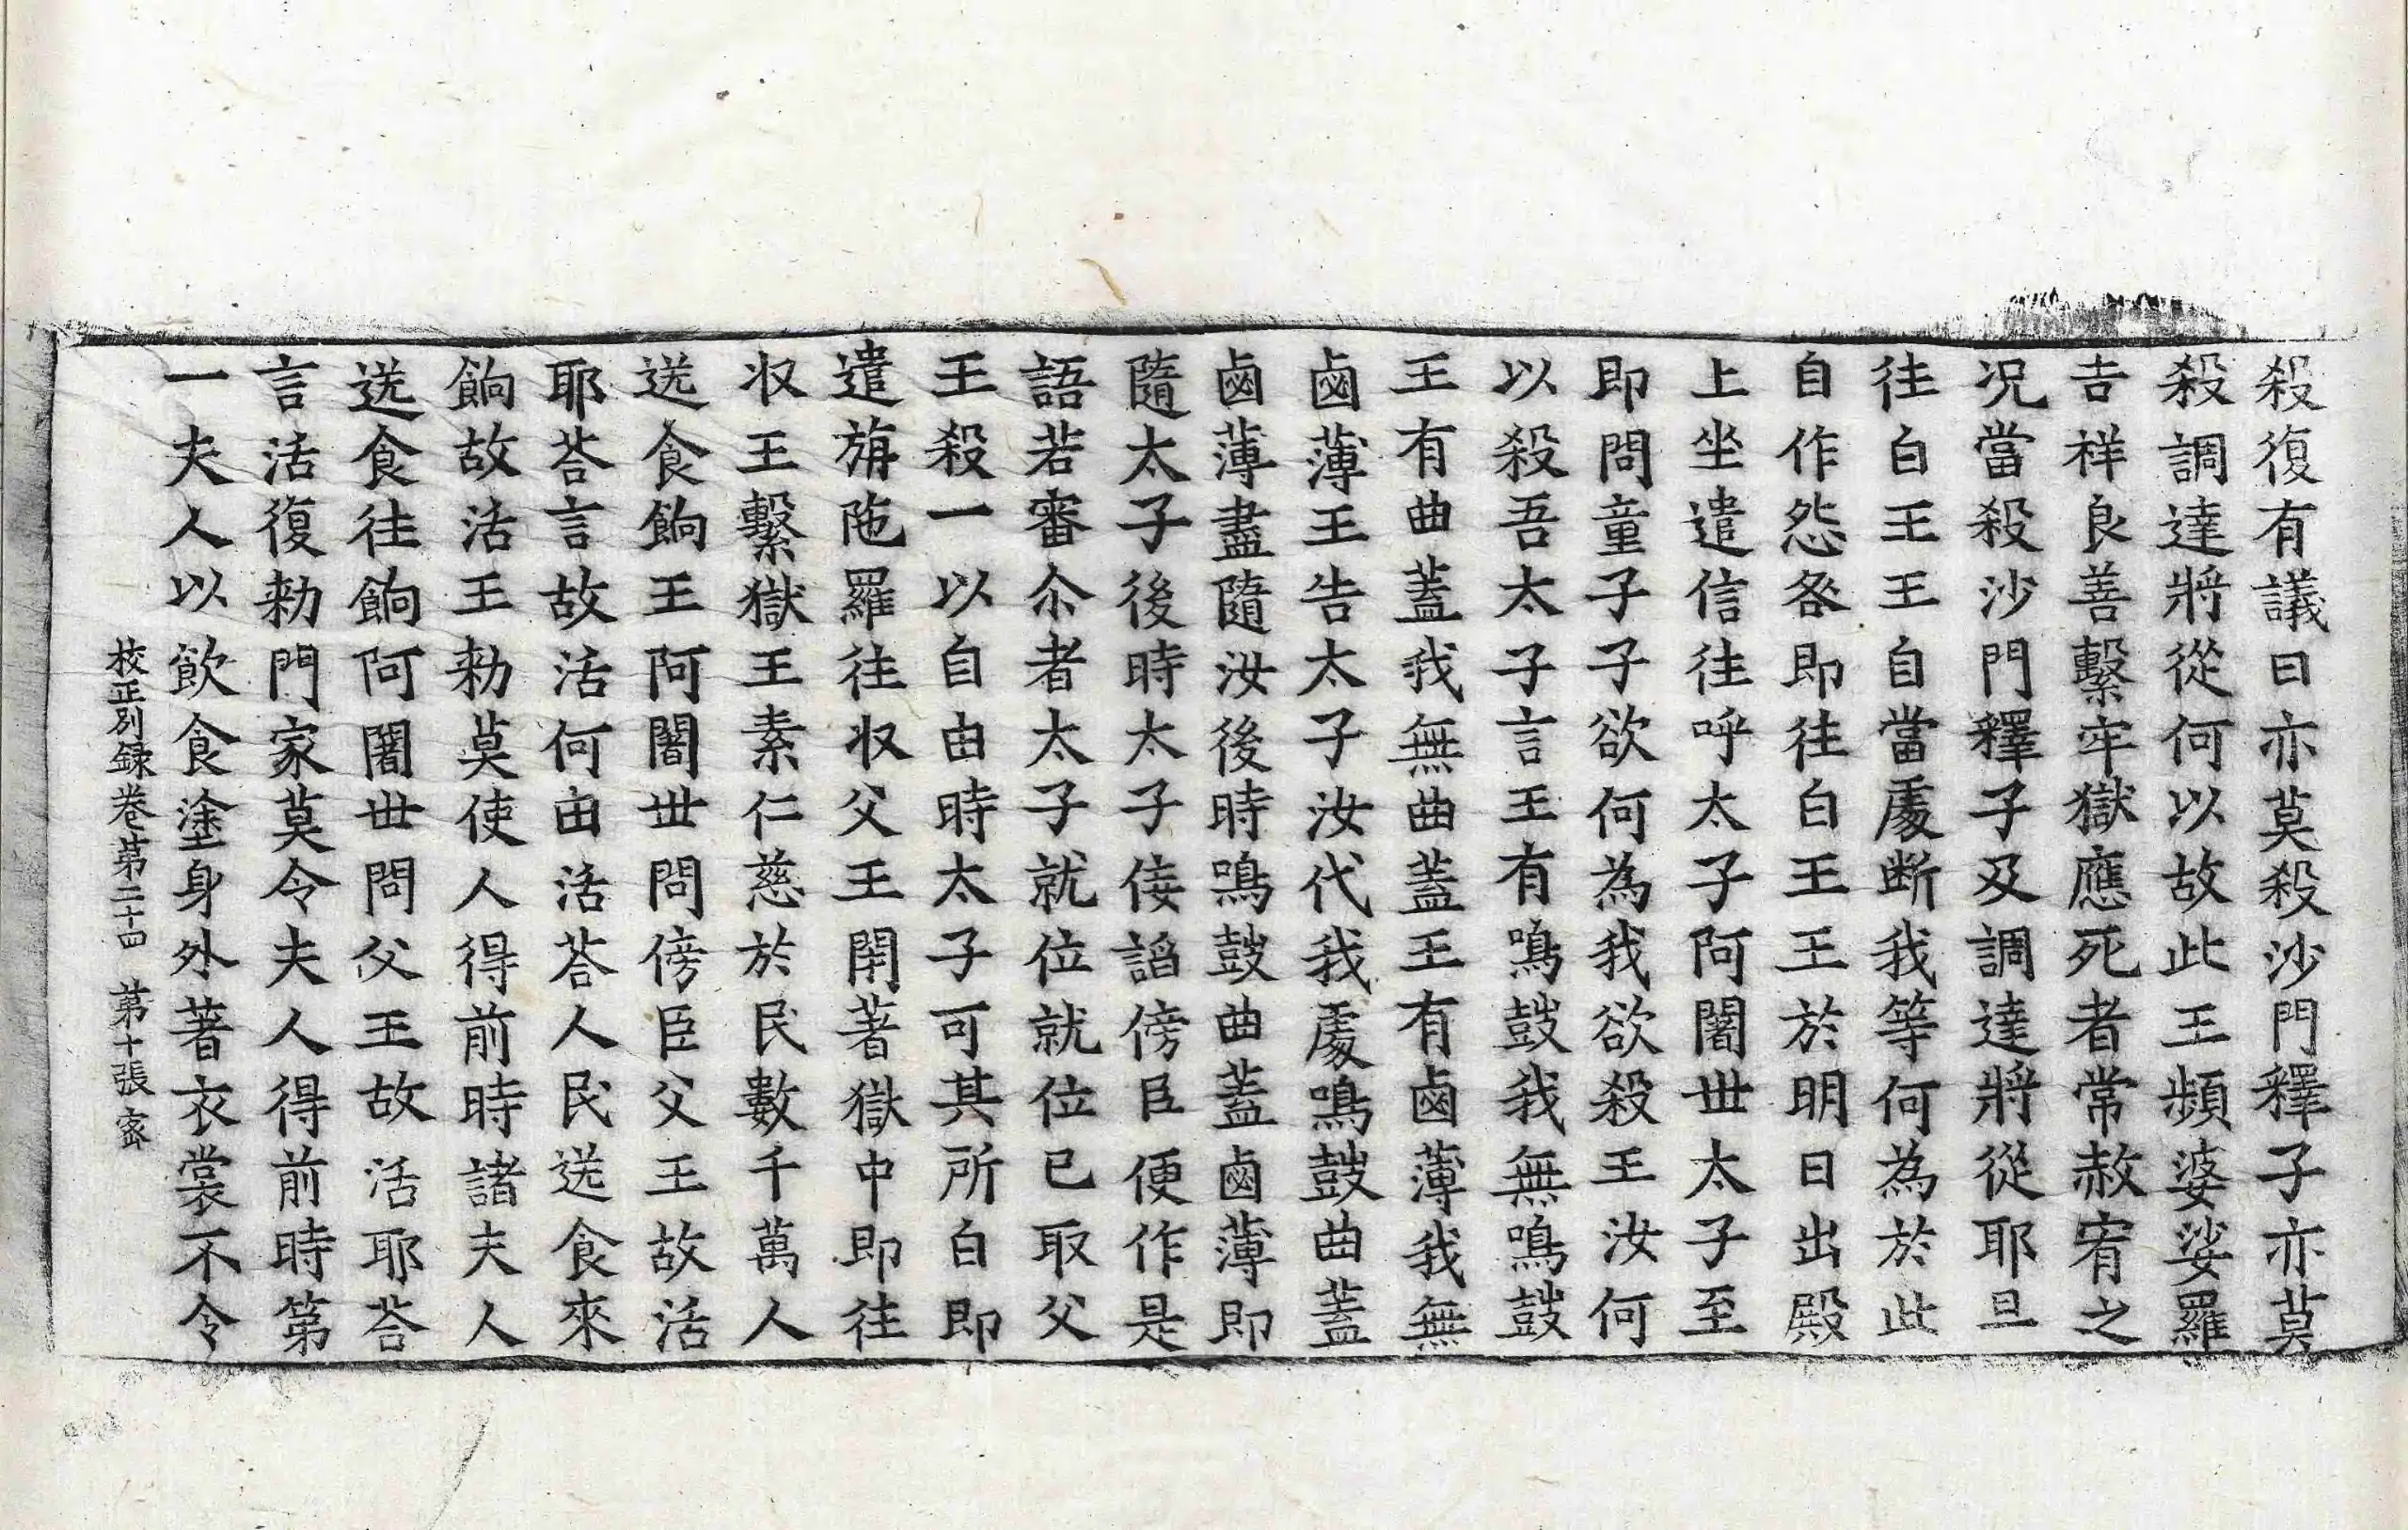 殺復有議曰亦莫殺沙門釋子亦莫
殺調達將從何以故此王頻婆娑羅
吉祥良善繫牢獄應死者常赦宥之
况當殺沙門釋子及調達將從耶旦
往白王王自當處断我等何為於此
自作怨咎即往白王王於明日出殿
上坐遣信往呼太子阿闍世太子至
即問童子子欲何為我欲殺王汝何
以殺吾太子子言王有鳴鼓我無鳴鼓
王有曲蓋我無曲蓋王有鹵薄我無
鹵薄王告太子汝代我處鳴鼓曲蓋
鹵薄盡隨汝後時鳴鼓曲蓋鹵薄即
隨太子後時太子侫謟傍臣便作是
語若審尒者太子就位就位已取父
王殺一以自由時太子可其所白即
遣旃陁羅往収父王閇著獄中即往
収王繫獄王素仁慈於民數千萬人
送食餉王阿闍世問傍臣父王故活
耶荅言故活何由活荅人民送食來
餉故活王勑莫使人得前時諸夫人
送食往餉阿闍世問父王故活耶荅
言活復勑門家莫令夫人得前時第
一夫人以飲食塗身外著衣裳不令
校正別録卷第二十四　第十張　宻